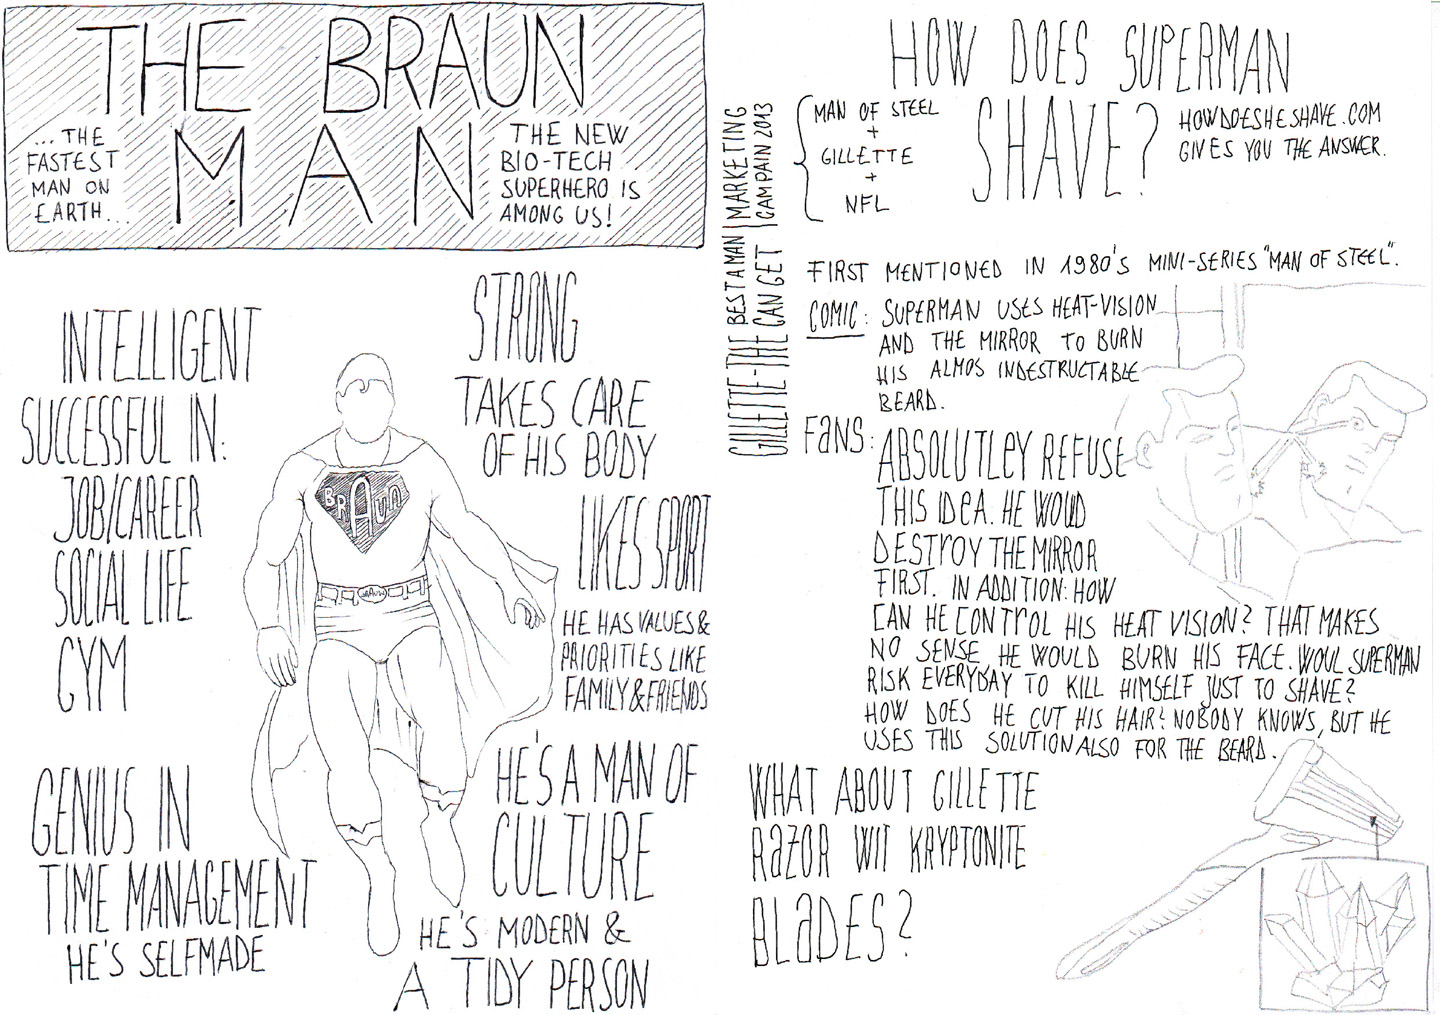 THE BRAUN
MAN
... THE
FASTEST
MAN ON
EARTH...
THE NEW
BIO-TECH
SUPERHERO IS
AMONG US!
INTELLIGENT
SUCCESSFUL IN:
JOB/CAREER
SOCIAL LIFE
GYM
GENIUS IN
TIME MANAGEMENT
HE'S SELFMADE
BRAUN
BRAUN
STRONG
TAKES CARE
OF HIS BODY
LIKES SPORT
HE HAS VALUES &
PRIORITIES LIKE
FAMILY & FRIENDS
HE'S A MAN OF
CULTURE
HE'S MODERN &
A TIDY PERSON
HOW DOES SUPERMAN
SHAVE?
HOWDOESHESHAVE.COM
GIVES YOU THE ANSWER.
MAN OF STEEL
+
GILLETTE
+
NFL
MARKETING
CAMPAIN 2013
GILLETTE-THE BEST A MAN
THE CAN GET
FIRST MENTIONED IN 1980'S MINI-SERIES "MAN OF STEEL".
COMIC: SUPERMAN USES HEAT-VISION
AND THE MIRROR TO BURN
HIS ALMOS INDESTRUCTABLE
BEARD.
FANS: ABSOLUTLEY REFUSE
THIS IDEA. HE WOUD
DESTROY THE MIRROR
FIRST. IN ADDITION: HOW
CAN HE CONTROL HIS HEAT VISION? THAT MAKES
NO SENSE. HE WOULD BURN HIS FACE. WOUL SUPERMAN
RISK EVERYDAY TO KILL HIMSELF JUST TO SHAVE?
HOW DOES HE CUT HIS HAIR? NOBODY KNOWS, BUT HE
USES THIS SOLUTION ALSO FOR THE BEARD.
WHAT ABOUT GILLETTE
RAZOR WIT KRYPTONITE
BLADES?